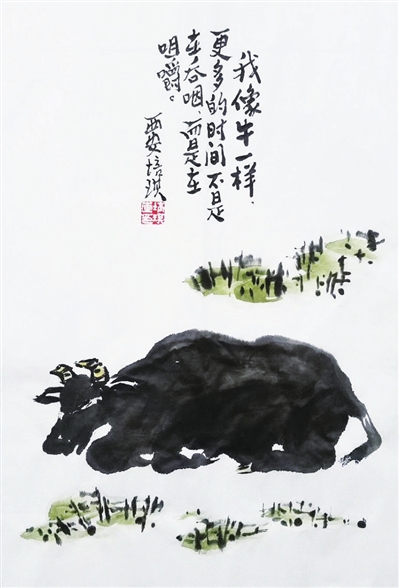 我像牛一样，
更多的时间不是
在吞咽，而是在
咀嚼。
西安培琪